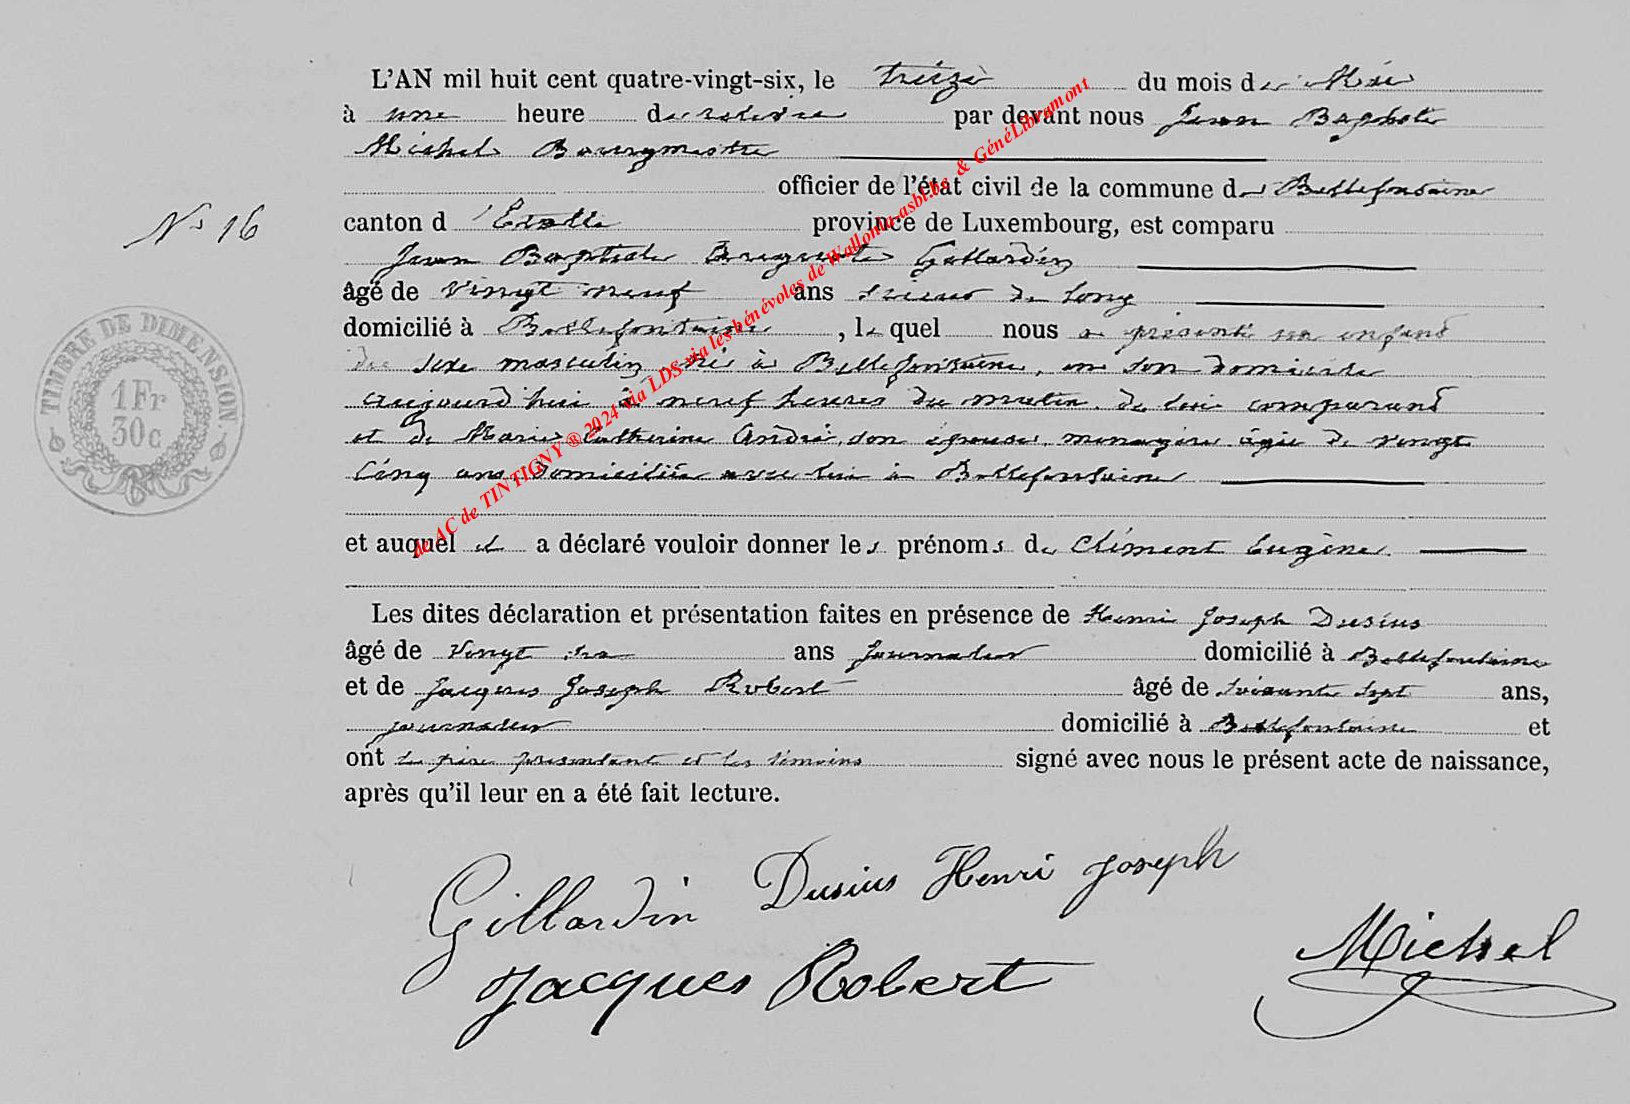 L'AN mil huit cent quatre-vingt-six, le treize du mois de Mai
à une heure de relevée par devant nous Jean Baptiste
Michel Bourgmestre
officier de l'état civil de la commune de Bellefontaine
canton d'Etalle province de Luxembourg, est comparu
N° 16
Jean Baptiste Auguste Gillardin
âgé de vingt neuf ans scieur de long
domicilié à Bellefontaine, lequel nous a présenté un enfant
du sexe masculin, né à Bellefontaine, en son domicile
aujourd'hui à neuf heures du matin, de lui comparant
et de Marie Catherine André, son épouse, ménagère âgée de vingt
cinq ans domiciliée avec lui à Bellefontaine
et auquel il a déclaré vouloir donner les prénoms de Clément Eugène.
Les dites déclaration et présentation faites en présence de Henri Joseph Dusius
âgé de vingt ans journalier domicilié à Bellefontaine
et de Jacques Joseph Robert âgé de soixante sept ans,
journalier domicilié à Bellefontaine et
ont le père présentant et les témoins signé avec nous le présent acte de naissance,
après qu'il leur en a été fait lecture.
Gillardin Dusius Henri Joseph
Jacques Robert Michel
TIMBRE DE DIMENSION.
1 Fr
30 c
de AC de TINTIGNY ® 2024 via LDS via les bénévoles de Wallonia-asbl.be & GénéLibramont